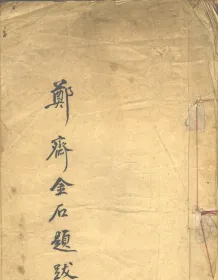 鄭齋金石題跋